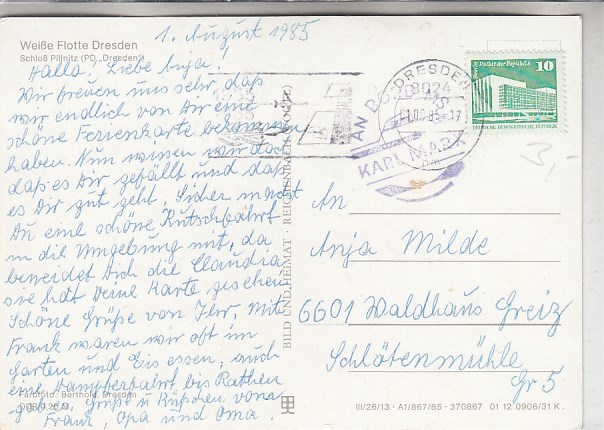 1. August 1985
Weiße Flotte Dresden
Schloß Pillnitz (PD „Dresden")
Hallo! Liebe Anja!
Wir freuen uns sehr, daß
wir endlich von Dir eine
schöne Ferienkarte bekommen
haben. Nun wissen wir doch
daß es Dir gefällt und daß
es Dir gut geht. Sicher machst
Du eine schöne Kutschfahrt
in die Umgebung mit, da
beneidet Dich die Claudia
sie hat Deine Karte gesehen
Schöne Grüße von Ihr, mit
Frank waren wir oft im
Garten und Eis essen, auch
eine Dampferfahrt bis Rathen
Grüße u Küßchen von
Frank, Opa und Oma.
Farbfoto: Berthold, Dresden
BILD UND HEIMAT · REICHENBACH (VOGTL)
DRESDEN
8024
-1.08.85-17
AN BORD
KARL MARX
Palast der Republik
10
DEUTSCHE DEMOKRATISCHE REPUBLIK
3,-
An
Anja Milde
6601 Waldhaus Greiz
Schlötenmühle
Gr 5
III/26/13 · A1/867/85 · 370867 01 12 0906/31 K.